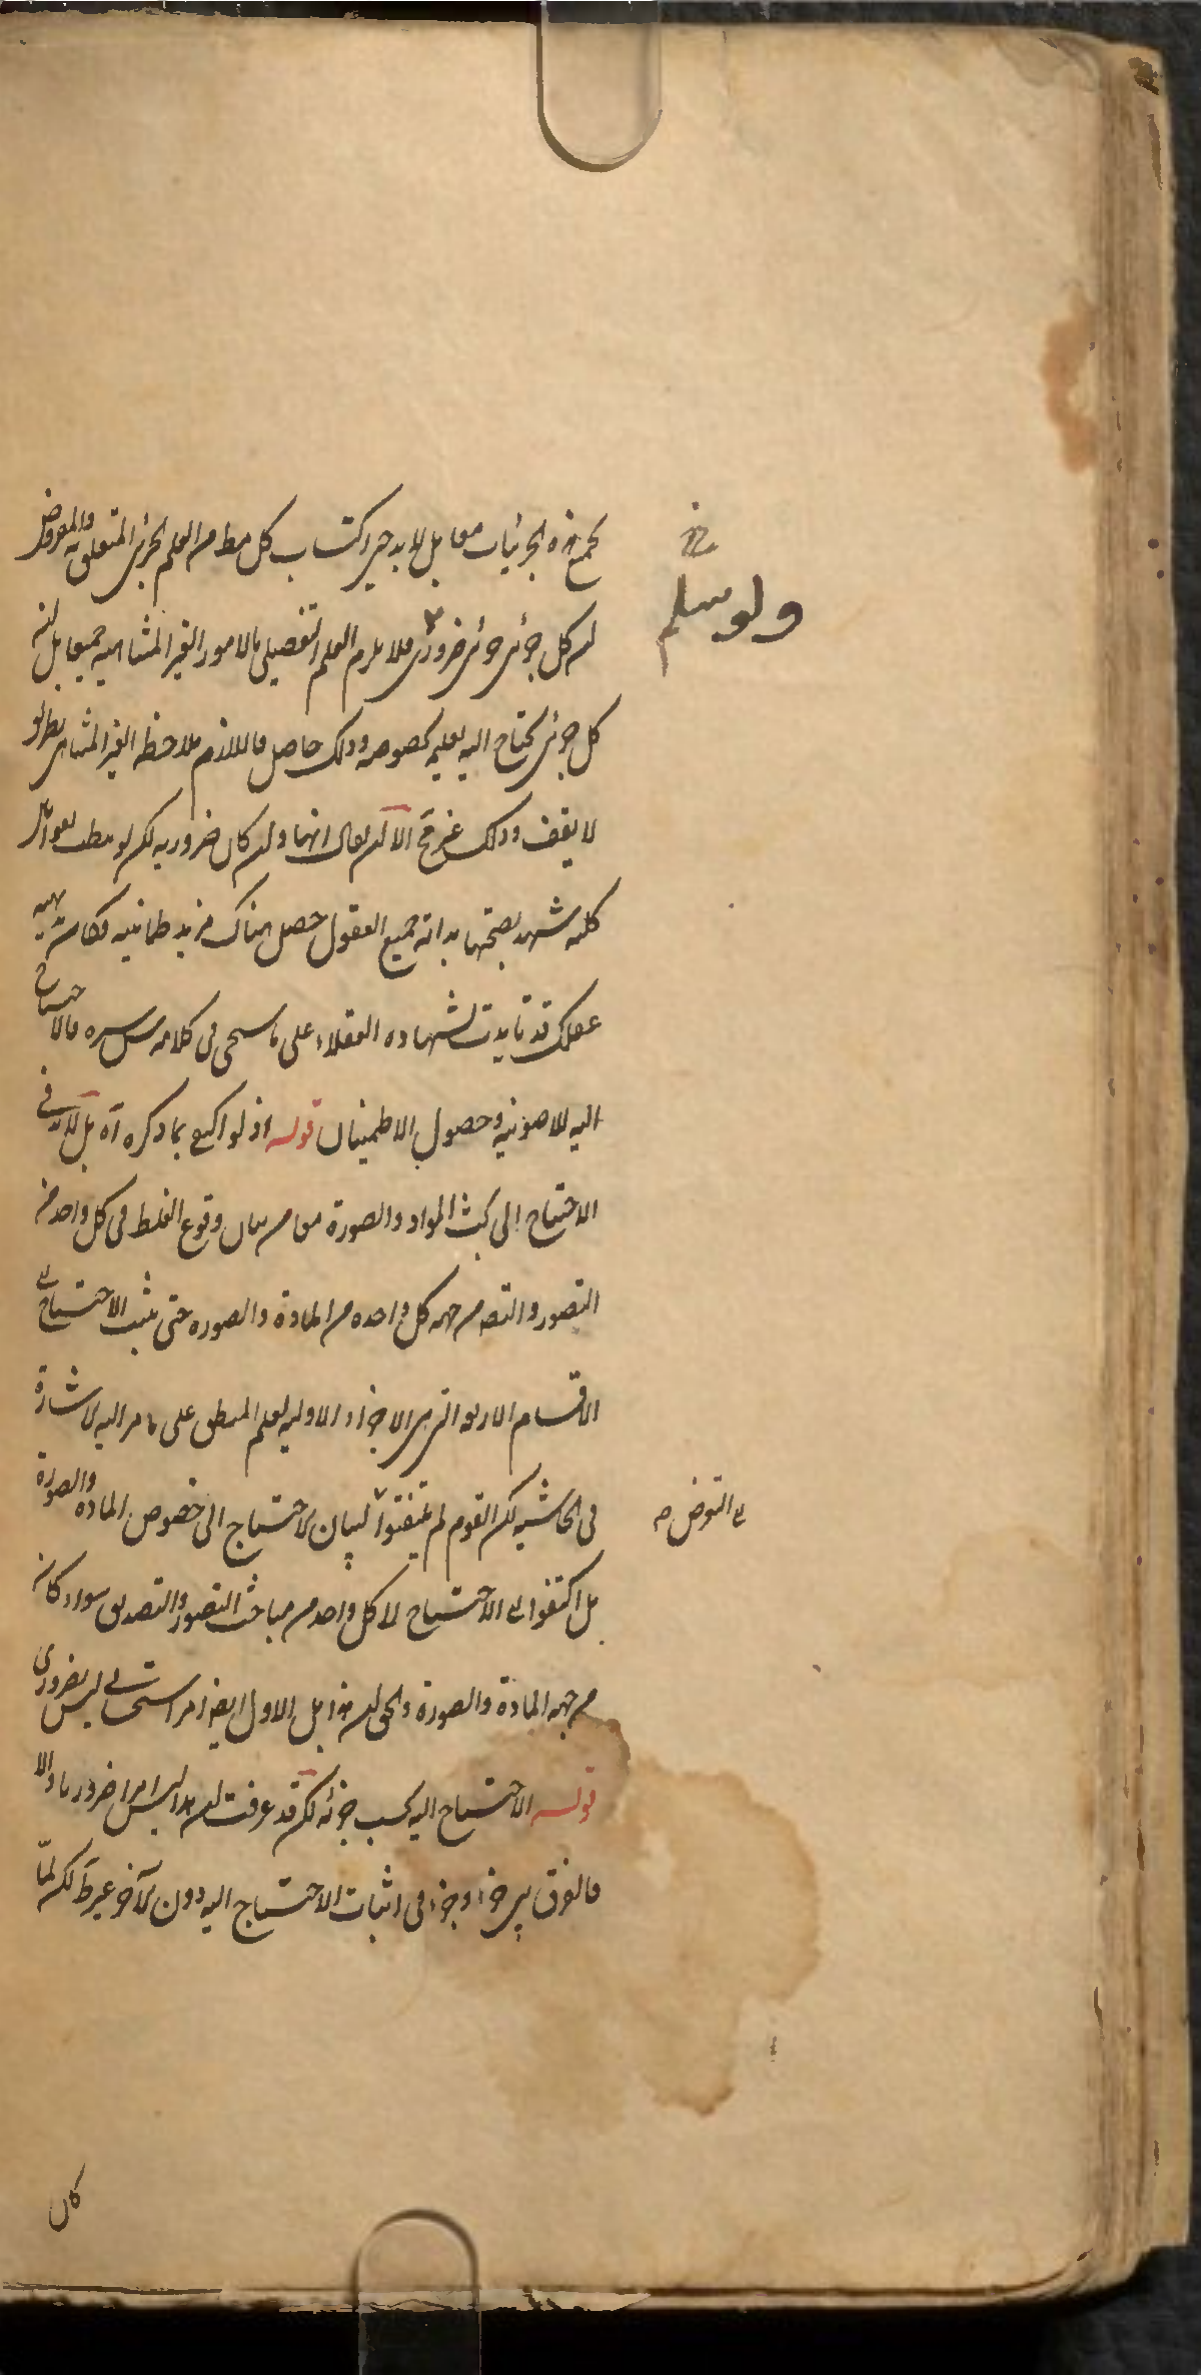 بجميع هذه الجزئيات معا بل لا بد حين اكتساب كل مط من العلم الجزئي المتعلق به والمفروض
ان كل جزئي جزئي ضروري فلا يلزم العلم التفصيلي بالامور الغير المتناهيه جميعا بل ان
كل جزئي يحتاج اليه يعلم بخصوصه وذلك حاصل فاللازم ملاحظه الغير المتناهي بطريق
لا يقف وذلك غير مح الا ان يقال انها وان كان ضروريه لكن لو ضبطت بقوانين
كليه شهد بصحتها بداهة جميع العقول حصل هناك مزيد طمانينه فكان بديهيه
عقلك قد تايدت بشهاده العقلاء على ما سيجي في كلامه س سره فالاحتياج
اليه للاهونيه وحصول الاطمينان قوله اذ لو اكتفي بما ذكره اه بل لا بد في
الاحتياج الى بحث المواد والصورة معا من بيان وقوع الغلط في كل واحد من
التصور والتصـ من جهه كل واحده من المادة والصوره حتى يثبت الاحتياج الى
الاقسام الاربعه التي هي الاجزاء الاوليه لعلم المنطق على ما مر اليه الاشارة
في الحاشيه لكن القوم لم يلتفتوا لبيان الاحتياج الى خصوص الماده والصورة
بل اكتفوا في الاحتياج الى كل واحد من مباحث التصور والتصديق سواء كان
من جهه المادة والصورة والحق ان هذا بل الاول ايضا امر استحساني ليس بضروري
قوله الاحتياج اليه بحسب جزئه لكن قد عرفت ان هذا ليس امرا ضروريا والا
فالفرق بين جزء وجزء في اثبات الاحتياج اليه دون الآخر غير ظ لكن لما
كان
خ
ولو سلم
الى التعرض صح